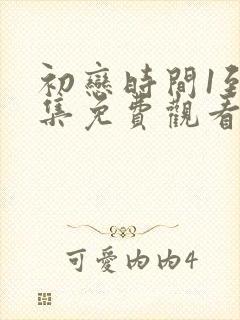 初戀時間1至
集免費觀看
可愛內內4